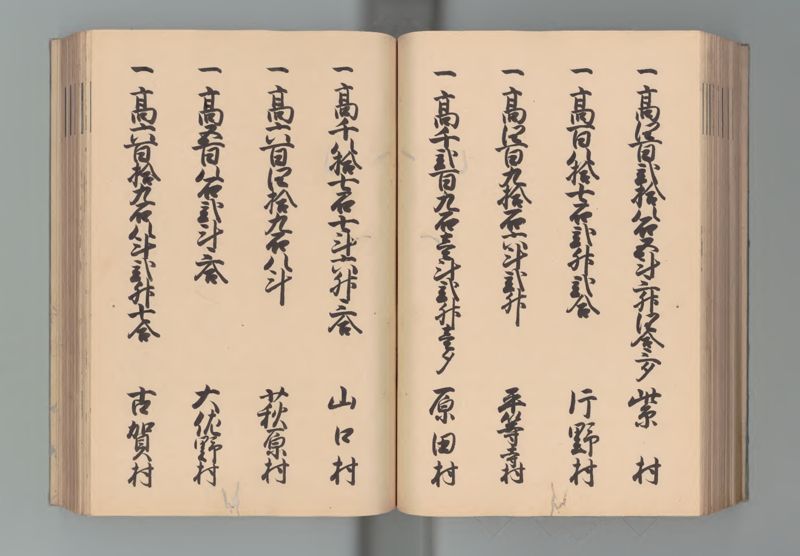 一 高四百弐拾八石五斗三升四合三夕 紫村
一 高百八拾七石弐升弐合 片野村
一 高四百九拾石六斗弐升 平等寺村
一 高千弐百九石壱斗弐升壱夕 原田村
一 高千八拾七石七斗六升三合 山口村
一 高六百四拾九石八斗 萩原村
一 高五百八石弐斗三合 大佐野村
一 高六百拾九石八斗弐升七合 古賀村